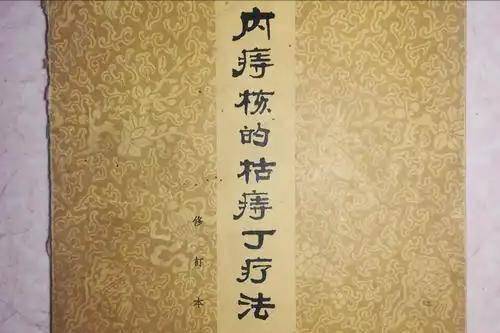 内痔核的枯痔丁疗法
修订本